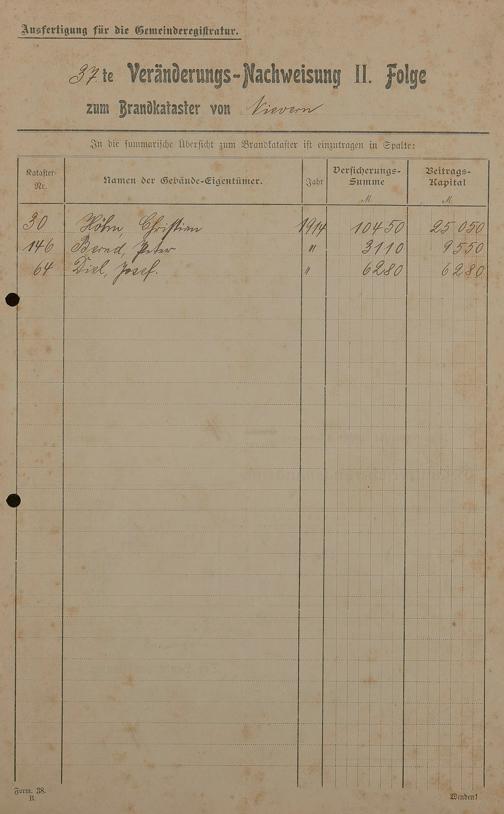 Ausfertigung für die Gemeinderegistratur.
37te Veränderungs-Nachweisung II. Folge
zum Brandkataster von Nievern
In die summarische Übersicht zum Brandkataster ist einzutragen in Spalte:
Kataster-Nr. Namen der Gebäude-Eigentümer. Jahr Versicherungs-Summe Beitrags-Kapital
M. M.
30 Höhn, Christian 1914 10450 25050
146 Bernd, Peter " 3110 9550
64 Diel, Josef. " 6280 6280
Form. 38. B. Wenden!